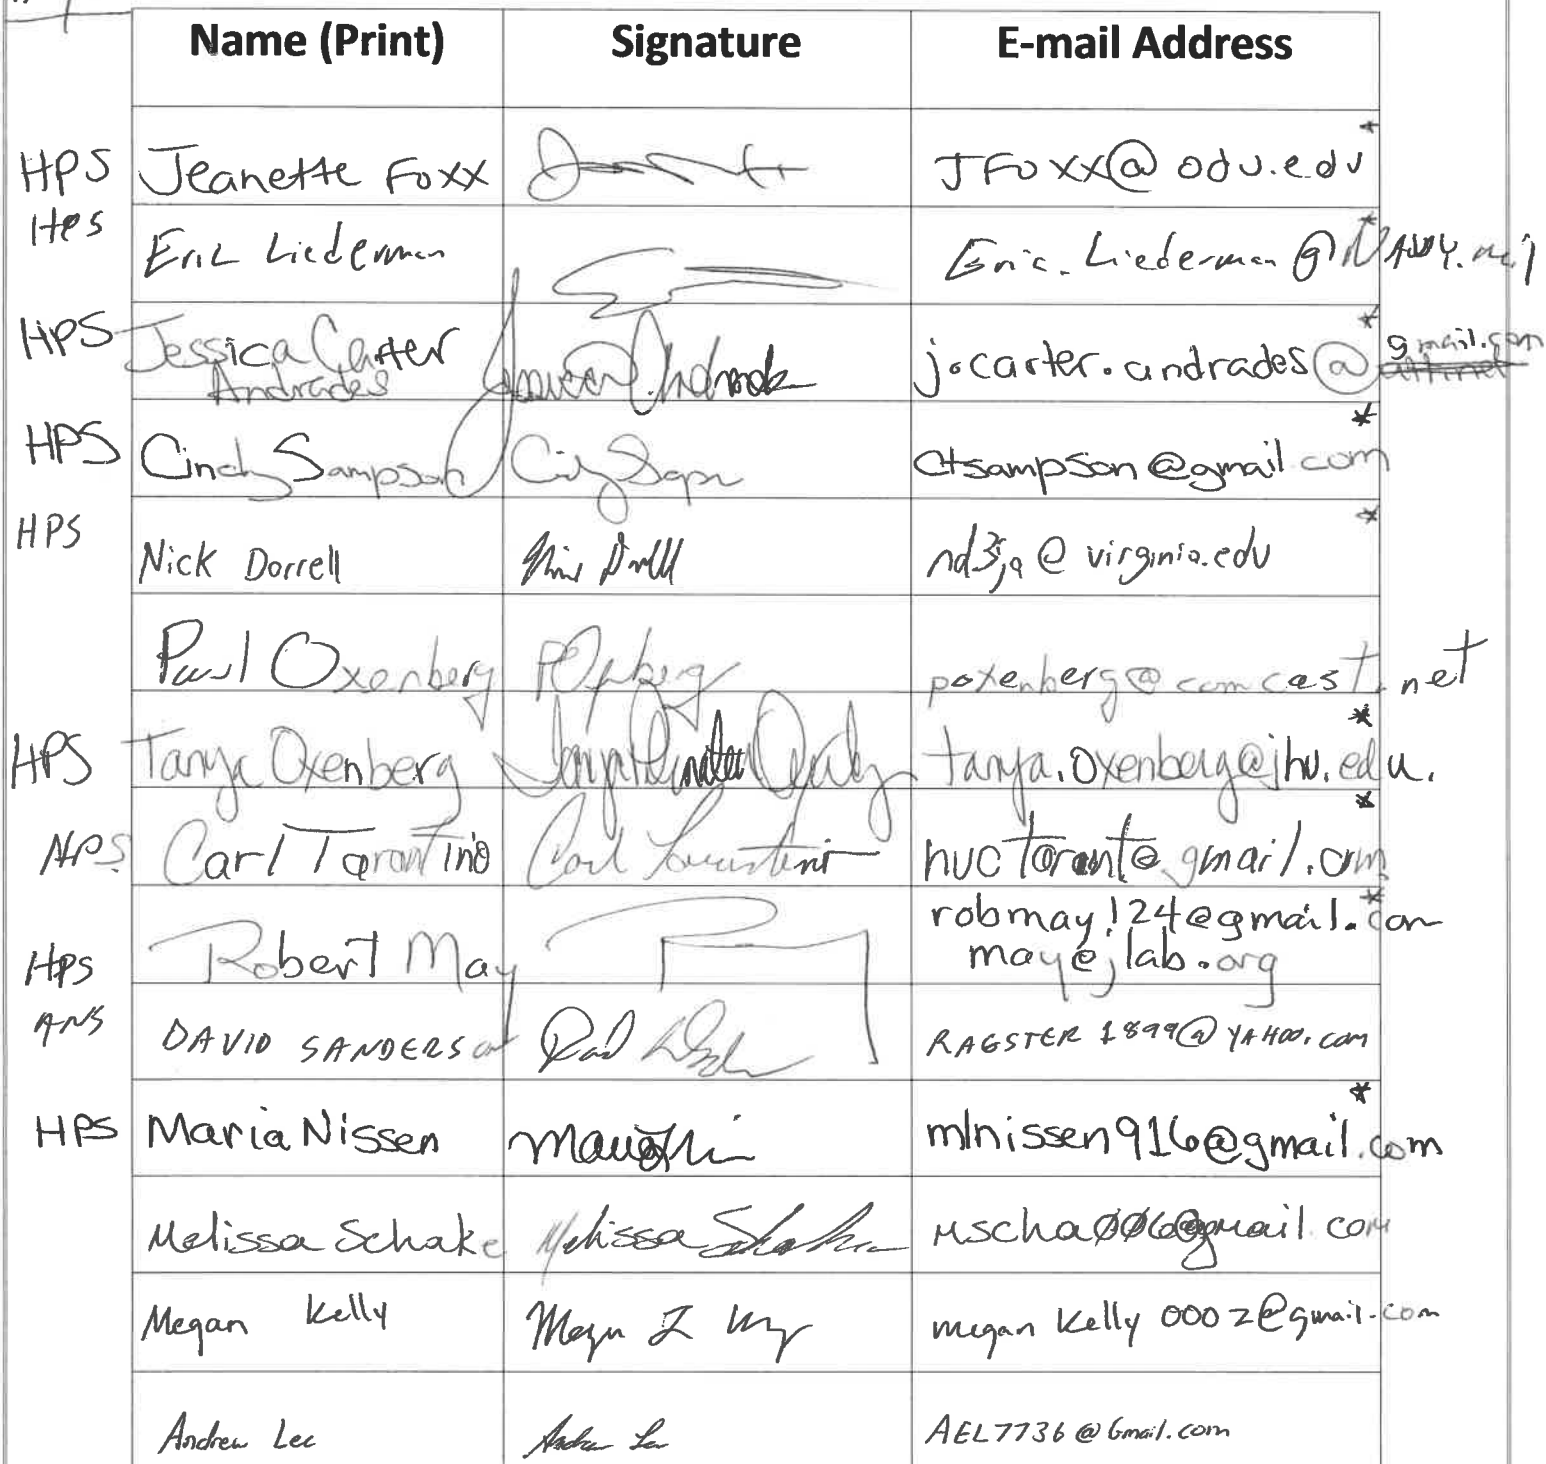 Name (Print) Signature E-mail Address
HPS Jeanette Foxx JFoxx@odu.edu *
HPS Eric Liederman Eric.Liederman@NAVY.mil *
HPS Jessica Carter Andrades j.carter.andrades@gmail.com *
HPS Cindy Sampson ctsampson@gmail.com *
HPS Nick Dorrell nd3ja@virginia.edu *
Paul Oxenberg POxenberg poxenberg@comcast.net
HPS Tanya Oxenberg tanya.oxenberg@jhu.edu. *
HPS Carl Tarantino Carl Tarantino nuctarant@gmail.com *
HPS Robert May robmay124@gmail.com *
may@jlab.org
ANS DAVID SANDERSON RAGSTER1899@YAHOO.com
HPS Maria Nissen mlnissen916@gmail.com *
Melissa Schake Melissa Schake mscha006@gmail.com
Megan Kelly megankelly0002@gmail.com
Andrew Lee Andrew Lee AEL7736@Gmail.com